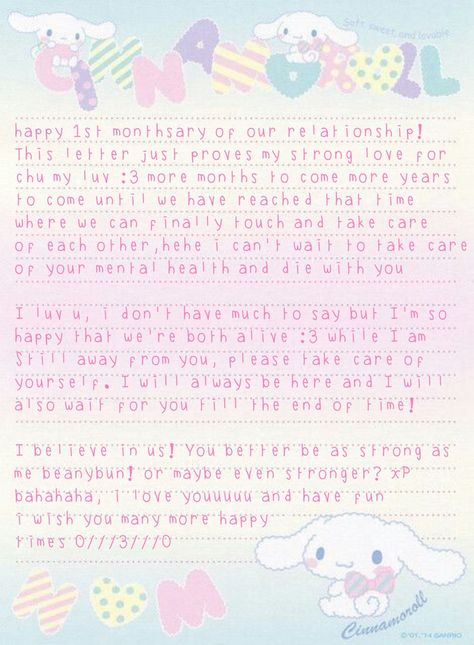 Soft, sweet, and lovable.
CINNAMOROLL
happy 1st monthsary of our relationship!
This letter just proves my strong love for
chu my luv :3 more months to come more years
to come until we have reached that time
where we can finally touch and take care
of each other,hehe i can't wait to take care
of your mental health and die with you
I luv u, i don't have much to say but I'm so
happy that we're both alive :3 while I am
Still away from you, please take care of
yourself. I will always be here and I will
also wait for you till the end of time!
I believe in us! You better be as strong as
me beanybun! or maybe even stronger? xP
bahahaha, i love youuuuu and have fun
i wish you many more happy
times 0///3///0
N♥M
Cinnamoroll
© '01, '14 SANRIO